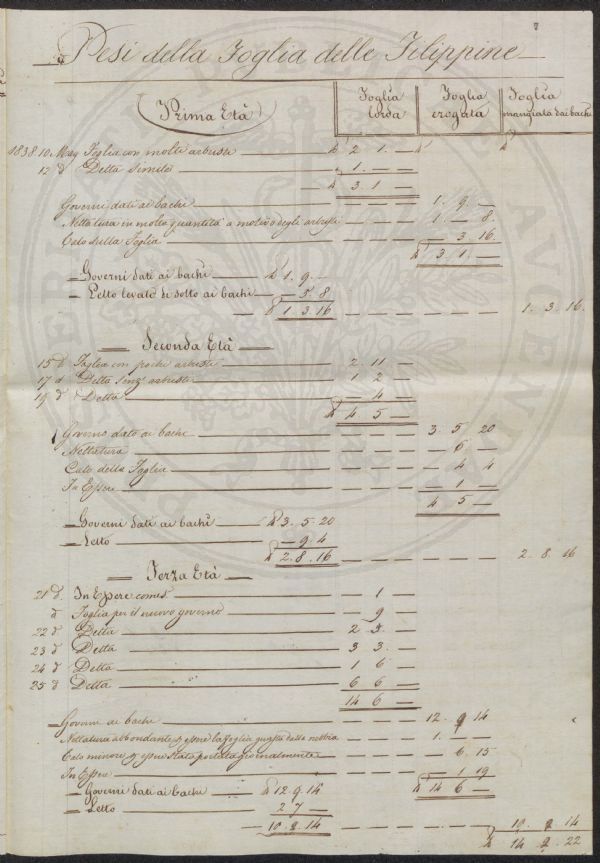 7
Pesi della Foglia delle Filippine
Prima Età
Foglia lorda
Foglia erogata
Foglia mangiata dai bachi
1838 10 Mag Foglia con molti arbusti 2 1 —
12 d Detta simile 1 —
3 1 —
Governi dati ai bachi 1 9 —
Nettatura in molta quantità a motivo degli arbusti 1 — 8
Calo sulla Foglia — 3 16
3 1 —
Governi dati ai bachi 1 9 —
Letto levato di sotto ai bachi — 5 8
1 3 16 1 3 16
Seconda Età
15 d Foglia con pochi arbusti 2 11 —
17 d Detta senz' arbusti 1 2 —
19 d Detta — 4 —
4 5 —
Governo dato ai bachi 3 5 20
Nettatura — 6 —
Calo della Foglia — 4 4
In Essere — 1 —
4 5 —
Governi dati ai bachi 3 5 20
Letto — 9 4
2 8 16 2 8 16
Terza Età
21 d In Essere come s' — 1 —
d Foglia per il nuovo governo — 9 —
22 d Detta 2 5 —
23 d Detta 3 3 —
24 d Detta 1 6 —
25 d Detta 6 6 —
14 6 —
Governi ai bachi 12 9 14
Nettatura abbondante essere la foglia della nostra 1 —
Calo minore essere stata portata giornalmente — 6 15
In Essere — 1 19
Governi dati ai bachi 12 9 14 14 6 —
Letto 2 7 —
10 2 14 10 2 14
14 2 22